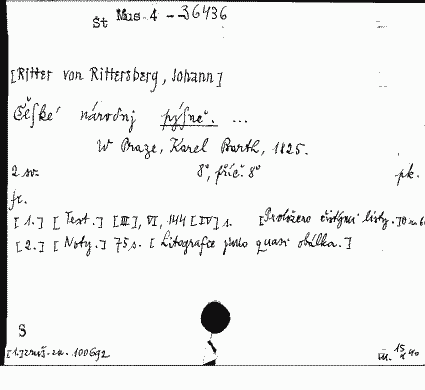 St Mus. 4 - 36436
[Ritter von Rittersberg, Johann]
Čeſké národnj pjſně. ...
W Praze, Karel Barth, 1825.
2 sv. 8°, příč. 8° pk.
fr.
[1.] [Text.] [III], VI, 144 [IV] s. [Proloženo čistými listy.]
[2.] [Noty.] 75 s. [Litografce jsou quasi obálka.]
S
[1.] 100692
15